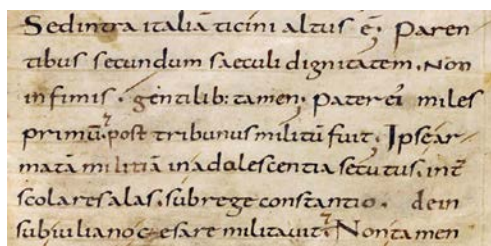 Sedintra italiā ticini altus ē; Paren
tibus secundum saeculi dignitatem. Non
infimis. gentilib: tamen; Pater ei miles
primū. post tribunus militū fuit; Ipse ar
matā militiā in adolescentia secutus. int
scolares alas. sub rege constantio. dein
sub iuliano cęsare militauit; Non tamen